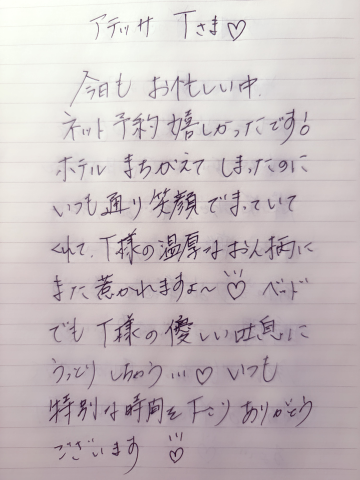 アテッサ Tさま♡
今日も お忙しい中
ネット予約嬉しかったです!
ホテル まちがえて しまったのに
いつも通り笑顔でまっていて
くれて、T様の温厚なお人柄に
また惹かれますよ〜♡ ベッド
でも T様の優しい吐息に
うっとり しちゃう…♡ いつも
特別な時間を下さり ありがとう
ございます ♡